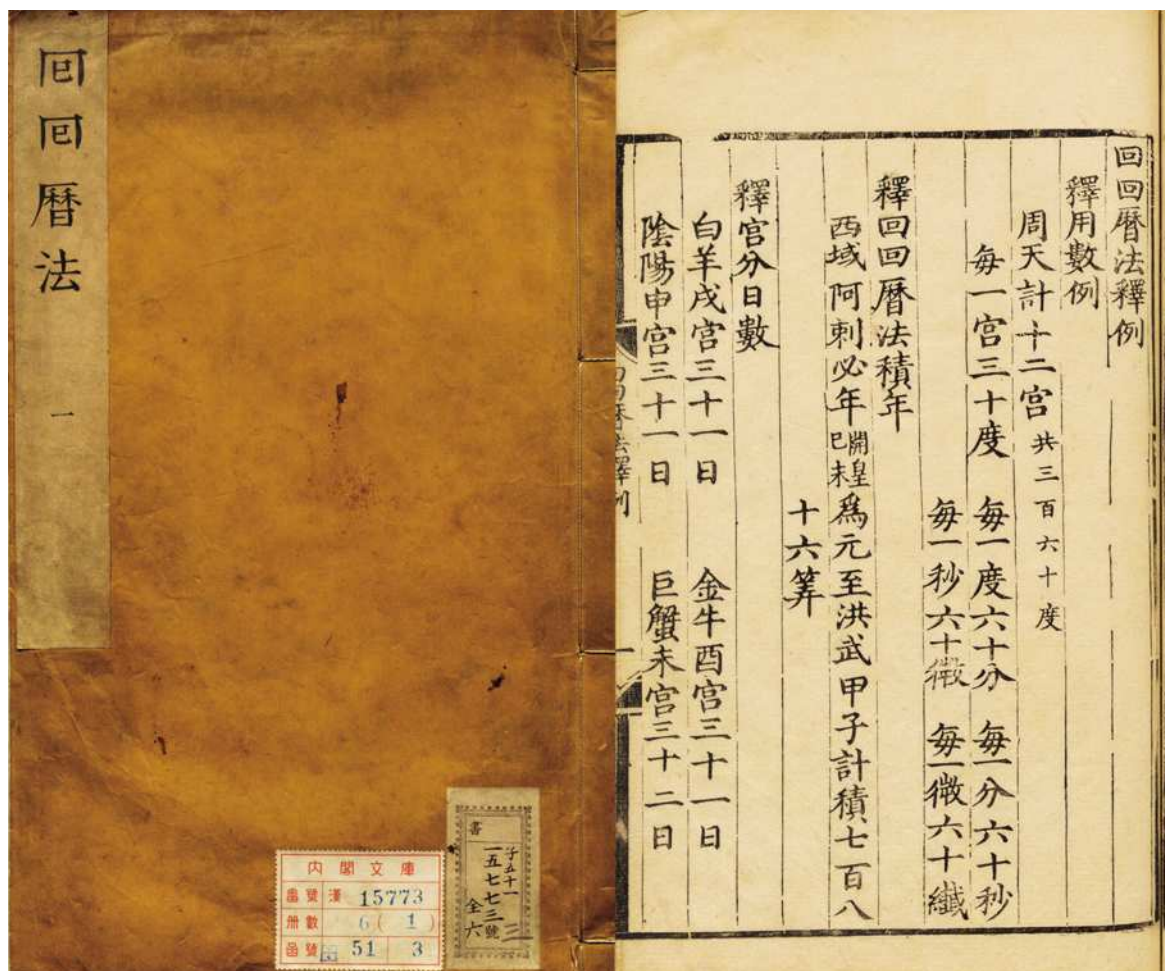 囘囘暦法 一
内閣文庫
番號 漢 15773
冊數 6(1)
函號 子 51 3
子五十一 三
書 一五七七三號
全六
回回暦法釋例
釋用數例
周天計十二宫 共三百六十度
每一宫三十度 每一度六十分 每一分六十秒
每一秒六十微 每一微六十纖
釋回回暦法積年
西域阿剌必年開皇己未爲元至洪武甲子計積七百八
十六筭
釋宫分日數
白羊戌宫三十一日 金牛酉宫三十一日
陰陽申宫三十一日 巨蟹未宫三十二日
回回暦法釋例 一